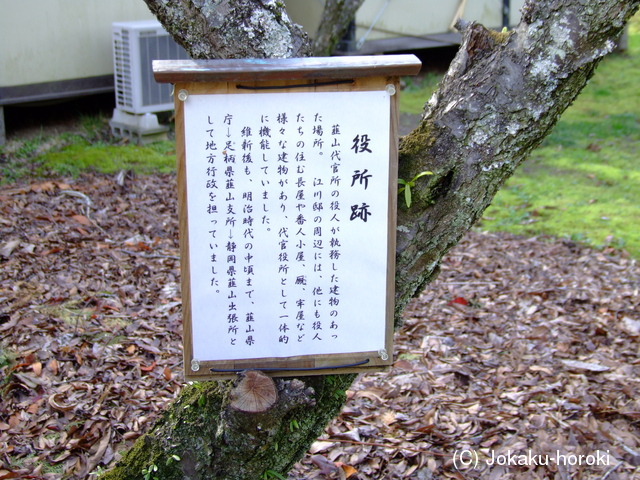 役所跡
韮山代官所の役人が執務した建物のあっ
た場所。 江川邸の周辺には、他にも役人
たちの住む長屋や番人小屋、厩、牢屋など
様々な建物があり、代官役所として一体的
に機能していました。
維新後も、明治時代の中頃まで、韮山県
庁→足柄県韮山支所→静岡県韮山出張所と
して地方行政を担っていました。
(C)Jokaku-horoki